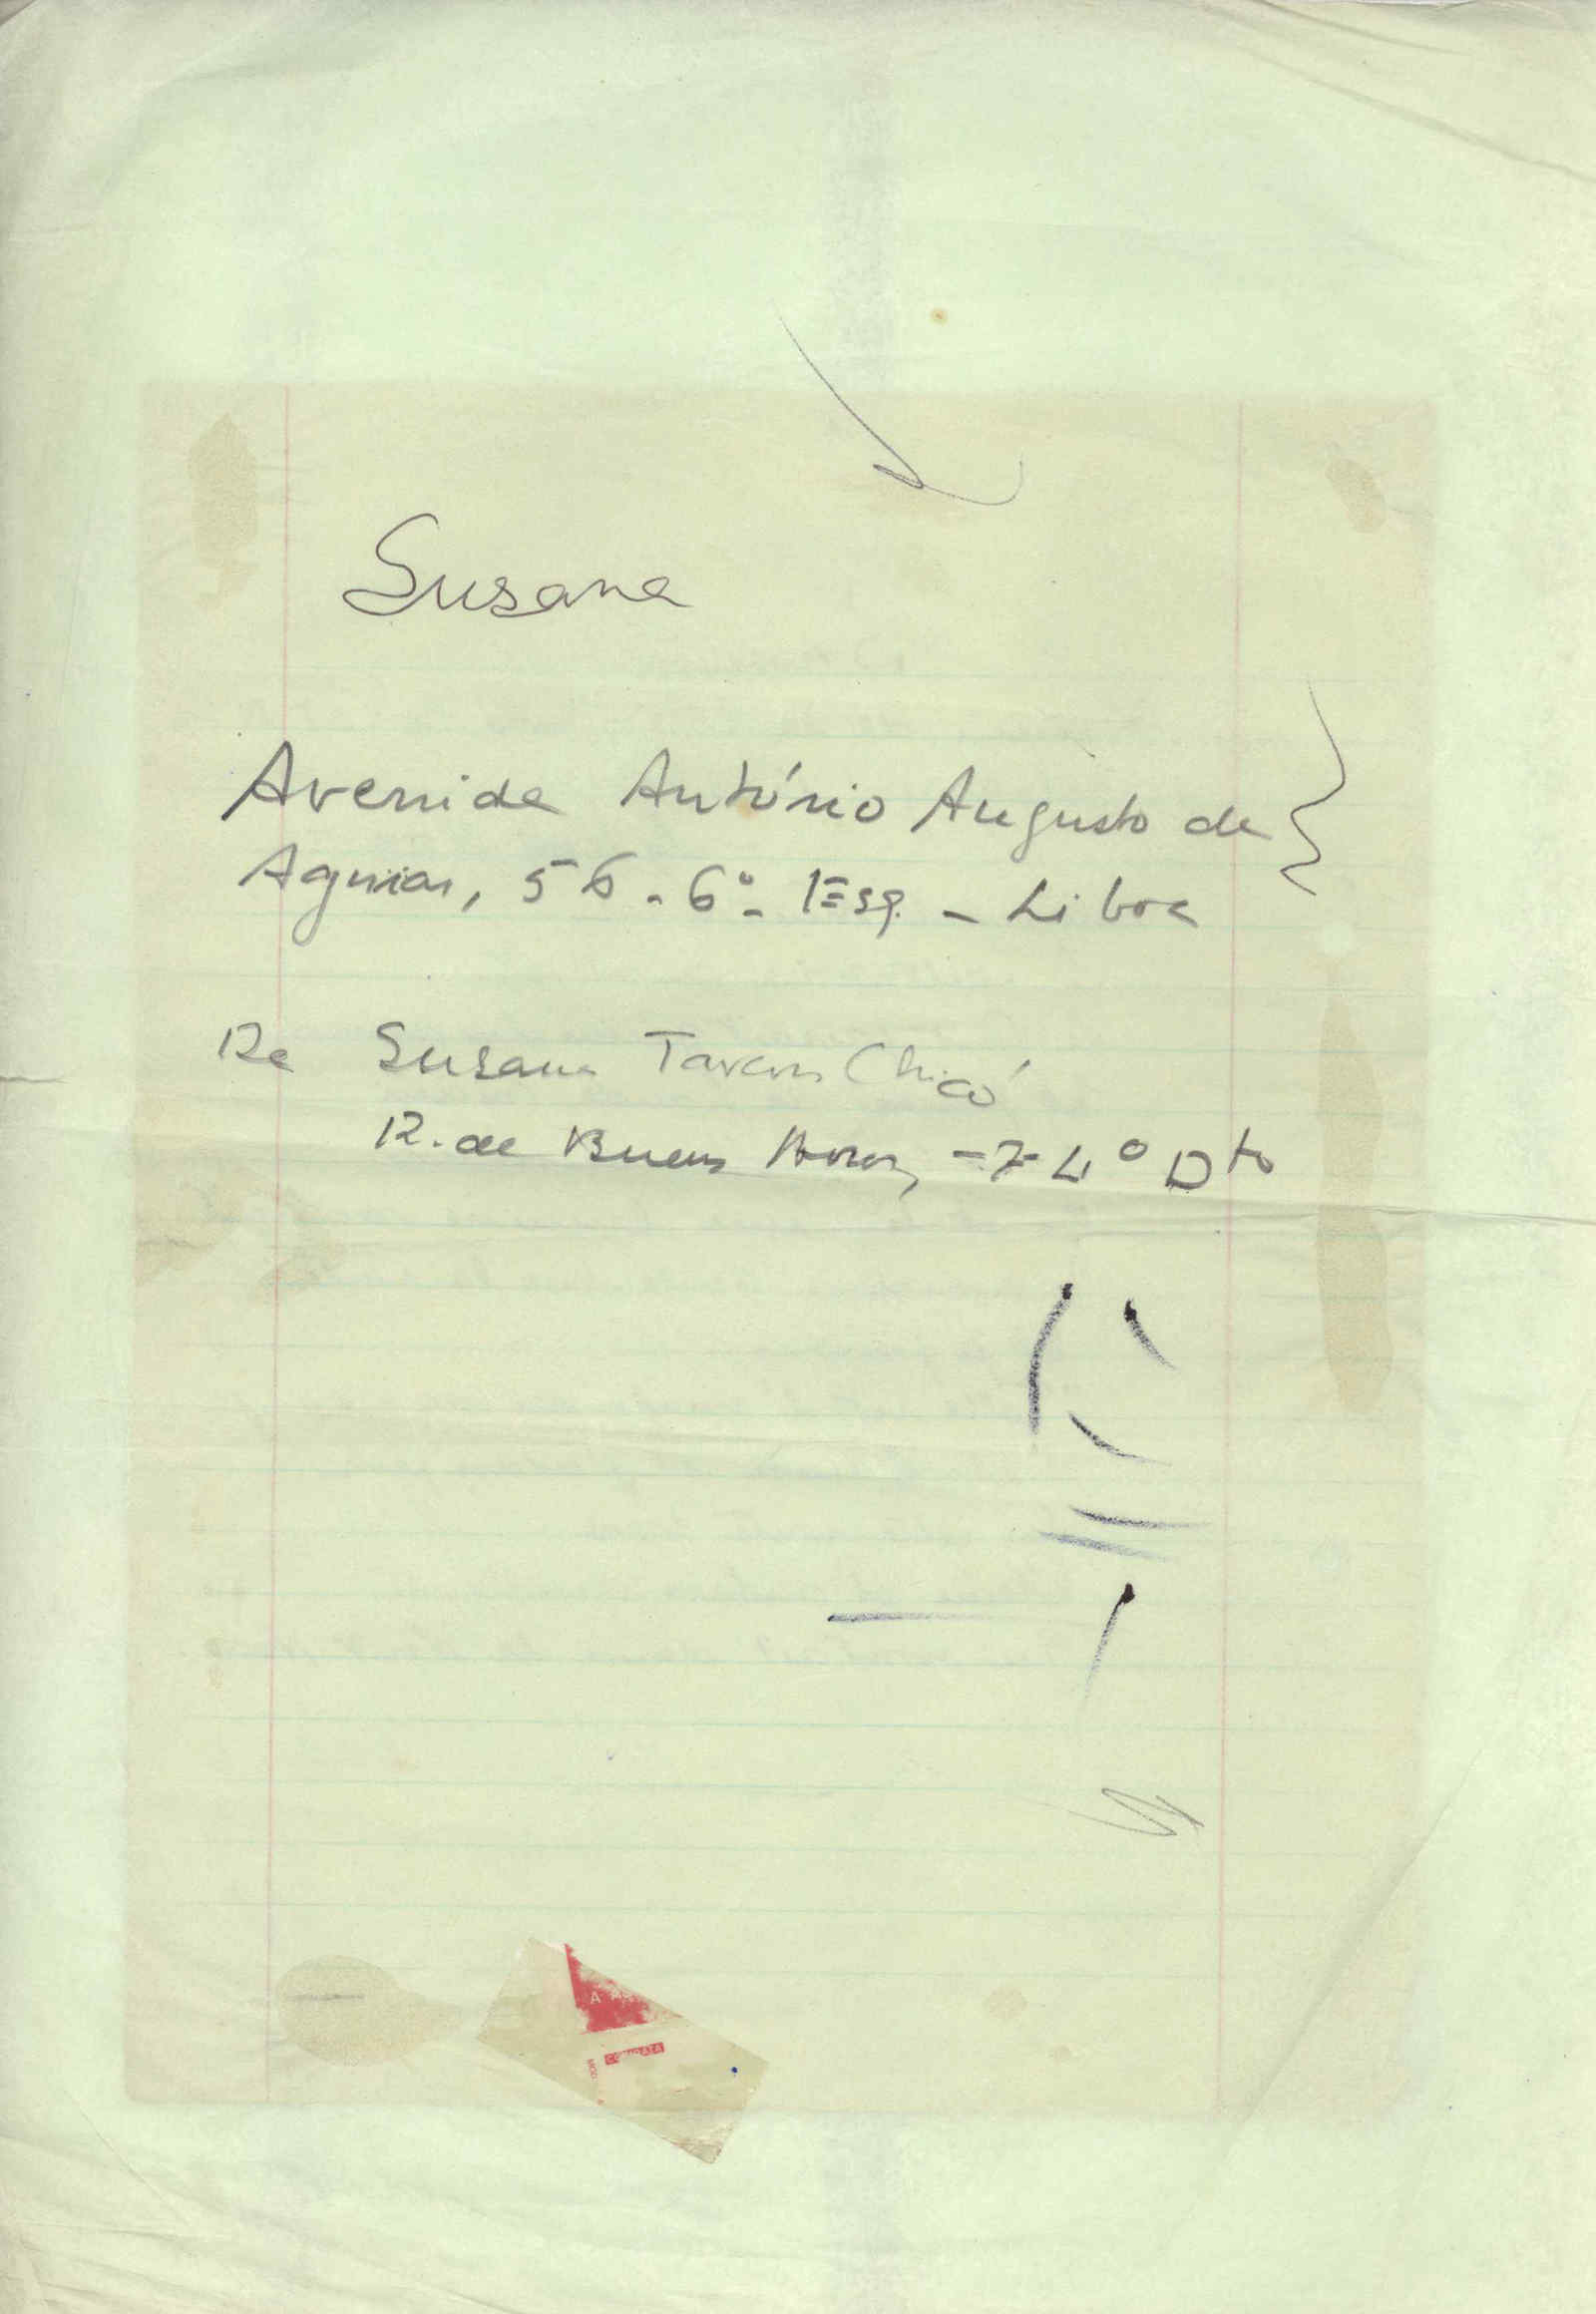 Susana
Avenida António Augusto de
Aguiar, 56 - 6º Esq. - Liboa
De Susana Tavares Chicó
R. de Buenos Aires, -7- 4º Dto